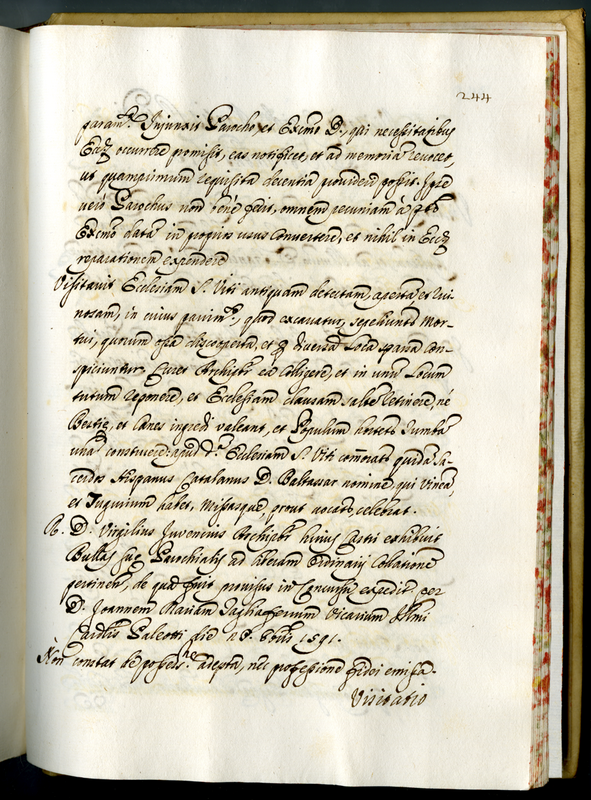 244
param.ᵗᵃ Injunxit Parocho, et Excmo D., qui necessitatibus
Eccłæ occurrere promisit, eas notificet, et ad memoriã revocet,
ut quamprimum requisita decentia provideri possit. Ipse
verò Parochus non benè audit, omnem pecuniam à
Excmo datã in proprios usus convertere, et nihil in Eccłæ
reparationem expendere
Visitavit Ecclesiam S. Viti antiquam detectam, apertã, et rui-
nosam, in cuius pavim.ᵗᵒ, quod excavatur, sepeliuntr Mor-
tui, quorum ossa discooperta, et p diversa loca sparsa con-
spiciuntur. Curet Archipbr ea colligere, et in unũ locum
tutum reponere, et Ecclesiam clausam saltẽ retinere, nè
Bestię, et Canes ingredi valeant, et Populum hortetr Tumbã
unã construere: apud d.ᵃᵐ Ecclesiam S. Viti com̃oratr quidã Sa-
cerdos Hispanus Catalanus D. Baltassar nomine, qui Vineã,
et Tugurium habet, Missasque, prout vocatr celebrat.
R. D. Virgilius Juvencius Archipbr huius Castri exhibuit
Bullas suę Parochialis ad liberam Ordinarij Collationẽ
pertinen., de qua fuit provisus in Concursu expedit. per
D. Joannem Mariam Tagliaferrum Vicarium Illmi
Cardlis Paleotti die 28 8bris 1591.
Non constat de possess.ⁿᵉ adepta, nec professione fidei emissa.
Visitatio